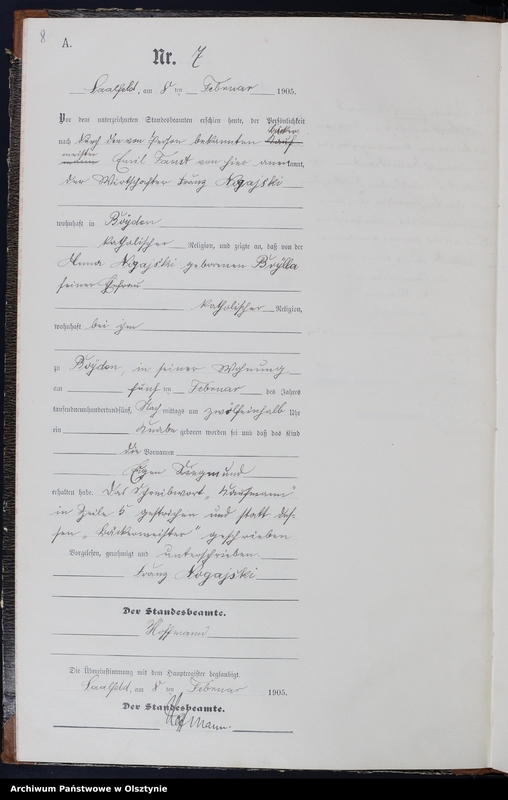 8
A.
Nr. 7
Saalfeld, am 8 ten Februar 1905.
Vor dem unterzeichneten Standesbeamten erschien heute, der Persönlichkeit
Bäcker
nach durch den von Person bekannten Kauf
meister
mann Emil von hier anerkannt,
der Wirtschafter Franz Nogajski
wohnhaft in Boyden
katholischer Religion, und zeigte an, daß von der
Anna Nogajski geborenen Brylla
seiner Ehefrau
katholischer Religion,
wohnhaft bei ihm
zu Boyden, in seiner Wohnung
am fünf ten Februar des Jahres
tausendneunhundertundfünf, Nach mittags um zwölfeinhalb Uhr
ein Knabe geboren worden sei und daß das Kind
die Vornamen
Siegmund
erhalten habe. Das Schreibwort „Kaufmann“
in Zeile 5 gestrichen und statt des-
sen „Bäckermeister“ geschrieben
Vorgelesen, genehmigt und unterschrieben
Franz Nogajski
Der Standesbeamte.
Hoffmann
Die Übereinstimmung mit dem Hauptregister beglaubigt.
Saalfeld, am 8 ten Februar 1905.
Der Standesbeamte.
Hoffmann.
Archiwum Państwowe w Olsztynie